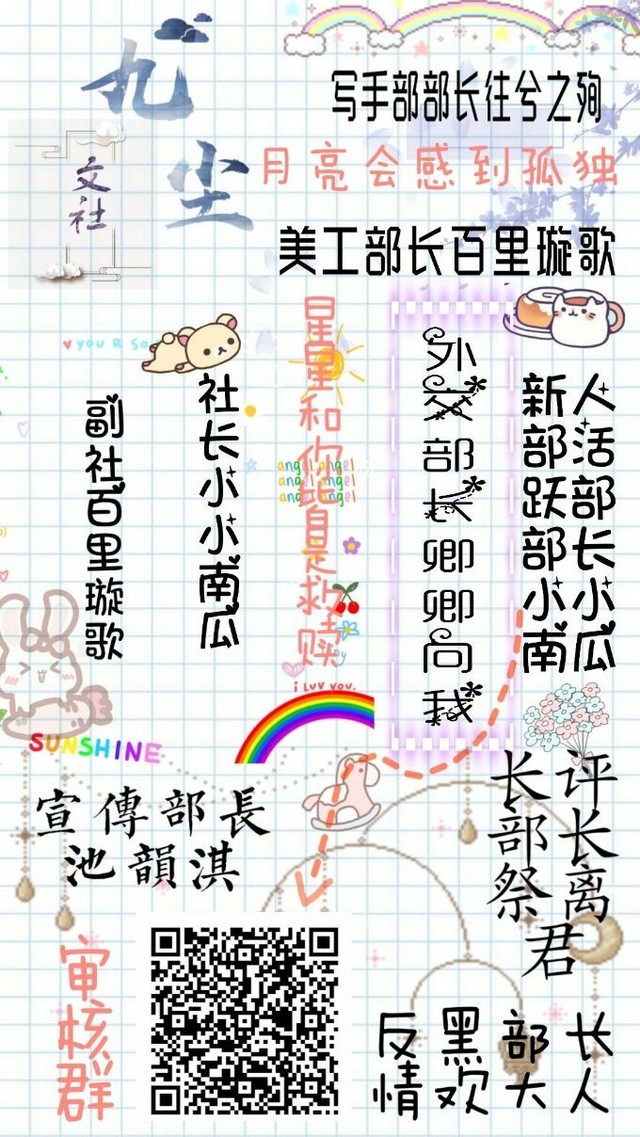 九尘
文社
写手部部长往兮之殉
月亮会感到孤独
美工部长百里璇歌
YOU R SO
副社百里璇歌
社长小小南瓜
星星和你皆是救赎
angel angel
angel angel
angel angel
外交部长卿卿向我
新人
部活
跃部
部长
小小
南瓜
i LUV YOU.
SUNSHINE
宣傳部長
池韻淇
长评
部长
祭离
君
审核群
反黑部长
情欢大人